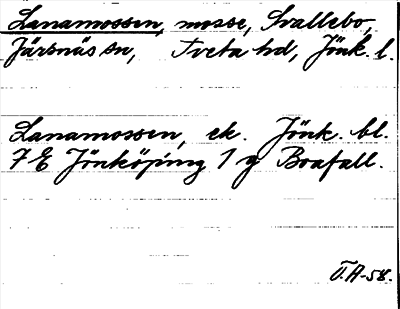 Lanamossen, mosse, Svallebo,
Järsnäs sn, Tveta hd, Jönk. l.
Lanamossen, ek. Jönk. bl.
7 E Jönköping 1 g Boafall.
O.A-58.